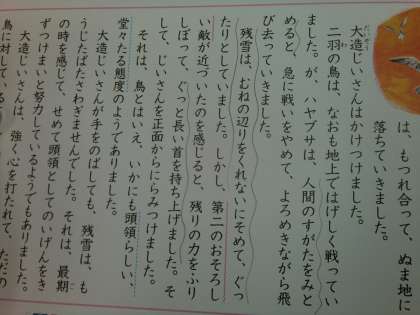 は、もつれ合って、ぬま地に
落ちていきました。
大造じいさんはかけつけました。
二羽の鳥は、なおも地上ではげしく戦ってい
ました。が、ハヤブサは、人間のすがたをみと
めると、急に戦いをやめて、よろめきながら飛
び去っていきました。
残雪は、むねの辺りをくれないにそめて、ぐっ
たりとしていました。しかし、第二のおそろし
い敵が近づいたのを感じると、残りの力をふり
しぼって、ぐっと長い首を持ち上げました。そ
して、じいさんを正面からにらみつけました。
それは、鳥とはいえ、いかにも頭領らしい、
堂々たる態度のようでありました。
大造じいさんが手をのばしても、残雪は、も
うじたばたさわぎませんでした。それは、最期
の時を感じて、せめて頭領としてのいげんをき
ずつけまいと努力しているようでもありました。
大造じいさんは、強く心を打たれて、ただの
鳥に対している